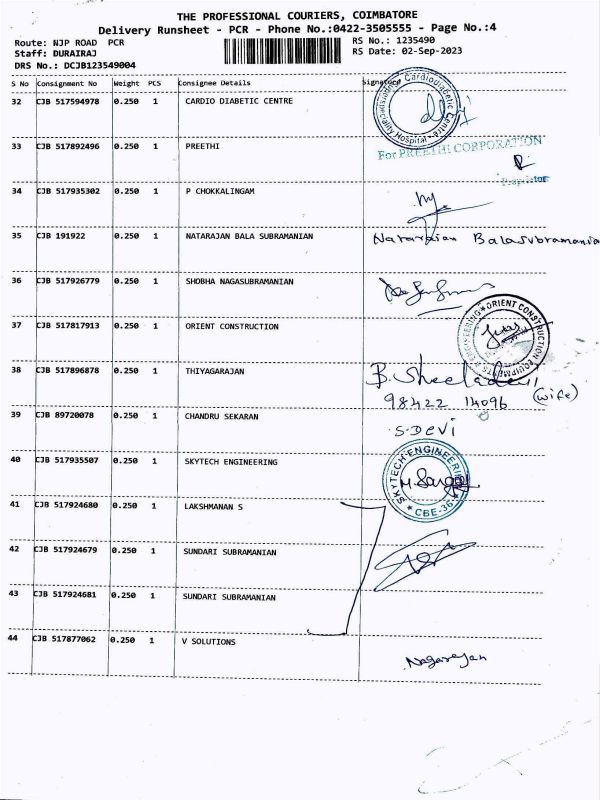 THE PROFESSIONAL COURIERS, COIMBATORE
Delivery Runsheet - PCR - Phone No.:0422-3505555 - Page No.:4
Route: NJP ROAD PCR
RS No.: 1235490
Staff: DURAIRAJ
RS Date: 02-Sep-2023
DRS No.: DCJB123549004
S No Consignment No Weight PCS Consignee Details Signature
32 CJB 517594978 0.250 1 CARDIO DIABETIC CENTRE
Cardiodiabetic Centre
Hospital
33 CJB 517892496 0.250 1 PREETHI
For PREETHI CORPORATION
Proprietor
34 CJB 517935302 0.250 1 P CHOKKALINGAM
35 CJB 191922 0.250 1 NATARAJAN BALA SUBRAMANIAN Natarajan Balasubramania
36 CJB 517926779 0.250 1 SHOBHA NAGASUBRAMANIAN
37 CJB 517817913 0.250 1 ORIENT CONSTRUCTION
ORIENT CONSTRUCTION EQUIPMENTS & ENGINEERING
38 CJB 517896878 0.250 1 THIYAGARAJAN B. Sheeladevi
98422 14096 (wife)
39 CJB 89720078 0.250 1 CHANDRU SEKARAN S.DEVI
40 CJB 517935507 0.250 1 SKYTECH ENGINEERING
SKYTECH ENGINEERING
CBE-36
41 CJB 517924680 0.250 1 LAKSHMANAN S
42 CJB 517924679 0.250 1 SUNDARI SUBRAMANIAN
43 CJB 517924681 0.250 1 SUNDARI SUBRAMANIAN
44 CJB 517877062 0.250 1 V SOLUTIONS Nagarajan